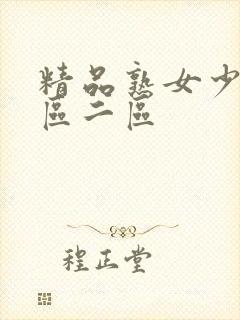 精品熟女少
區二區
程正堂